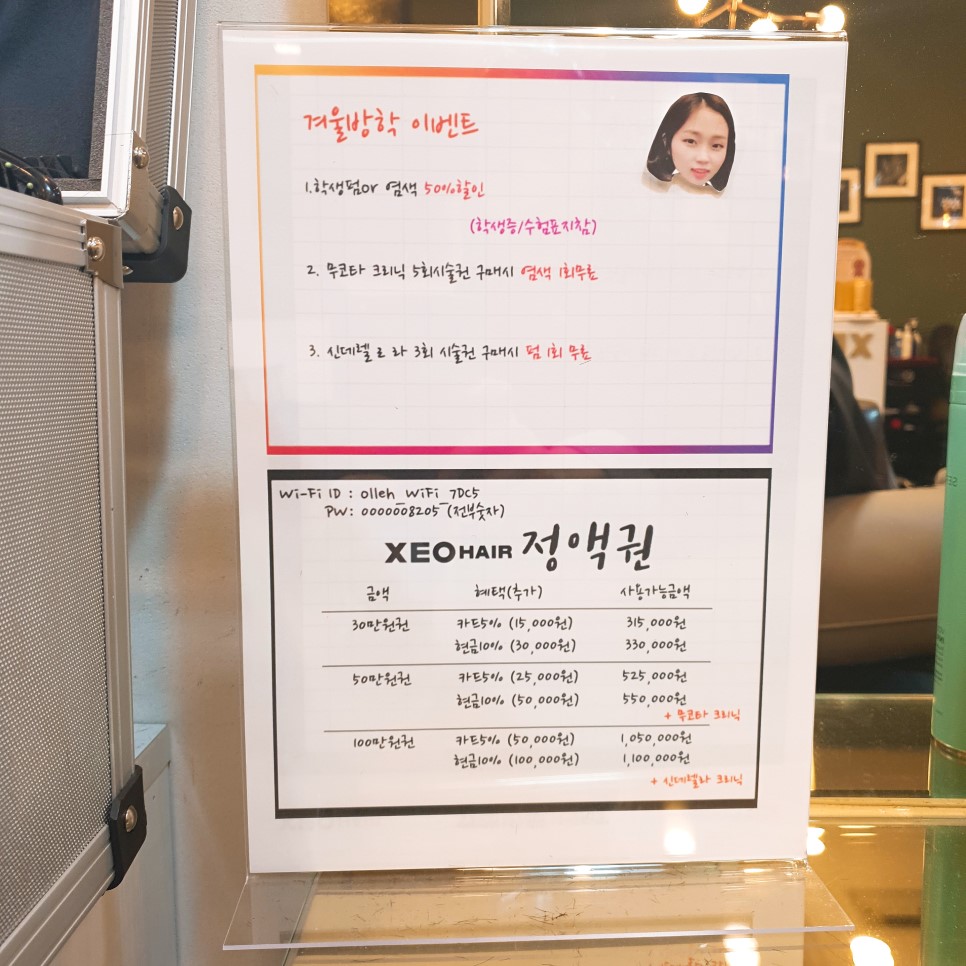 겨울방학 이벤트
1.학생펌or 염색 50%할인
(학생증/수험표지참)
2. 무코타 크리닉 5회시술권 구매시 염색 1회무료
3. 신데렐ㄹ 라 3회 시술권 구매시 펌 1회 무료
Wi-Fi ID : olleh_WiFi_7DC5
PW: 0000008205 (전부숫자)
XEOHAIR 정액권
금액 혜택(추가) 사용가능금액
30만원권 카드5% (15,000원) 315,000원
현금10% (30,000원) 330,000원
50만원권 카드5% (25,000원) 525,000원
현금10% (50,000원) 550,000원
+ 무코타 크리닉
100만원권 카드5% (50,000원) 1,050,000원
현금10% (100,000원) 1,100,000원
+ 신데렐라 크리닉